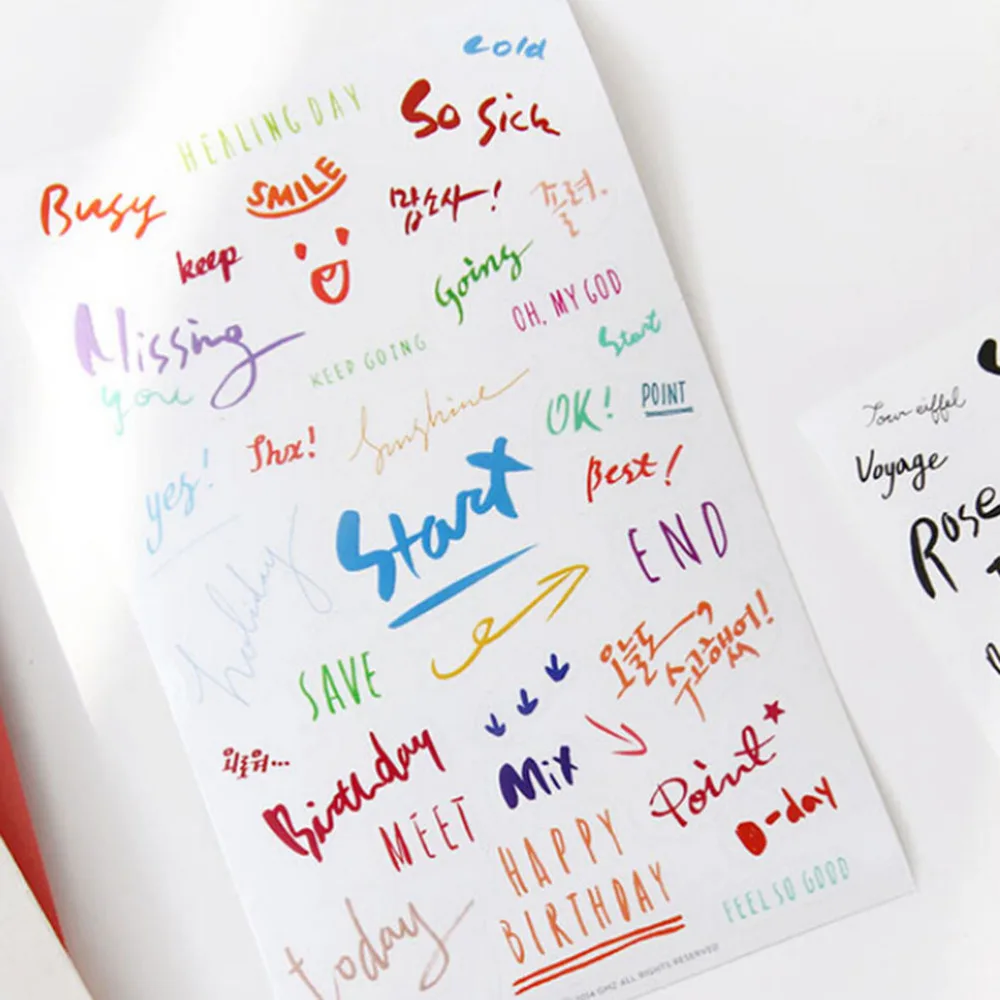 cold
HEALING DAY
So Sick
Busy
SMILE
맙소사!
졸려.
keep
Going
OH, MY GOD
Missing
you
KEEP GOING
Start
Thx!
Sunshine
OK!
POINT
yes!
Start
Best!
holiday
END
SAVE
오늘도
수고했어!
외로워...
Birthday
Mix
Point
MEET
HAPPY
BIRTHDAY
D-day
FEEL SO GOOD
today
ALL RIGHTS RESERVED
Tour eiffel
Voyage
Rose